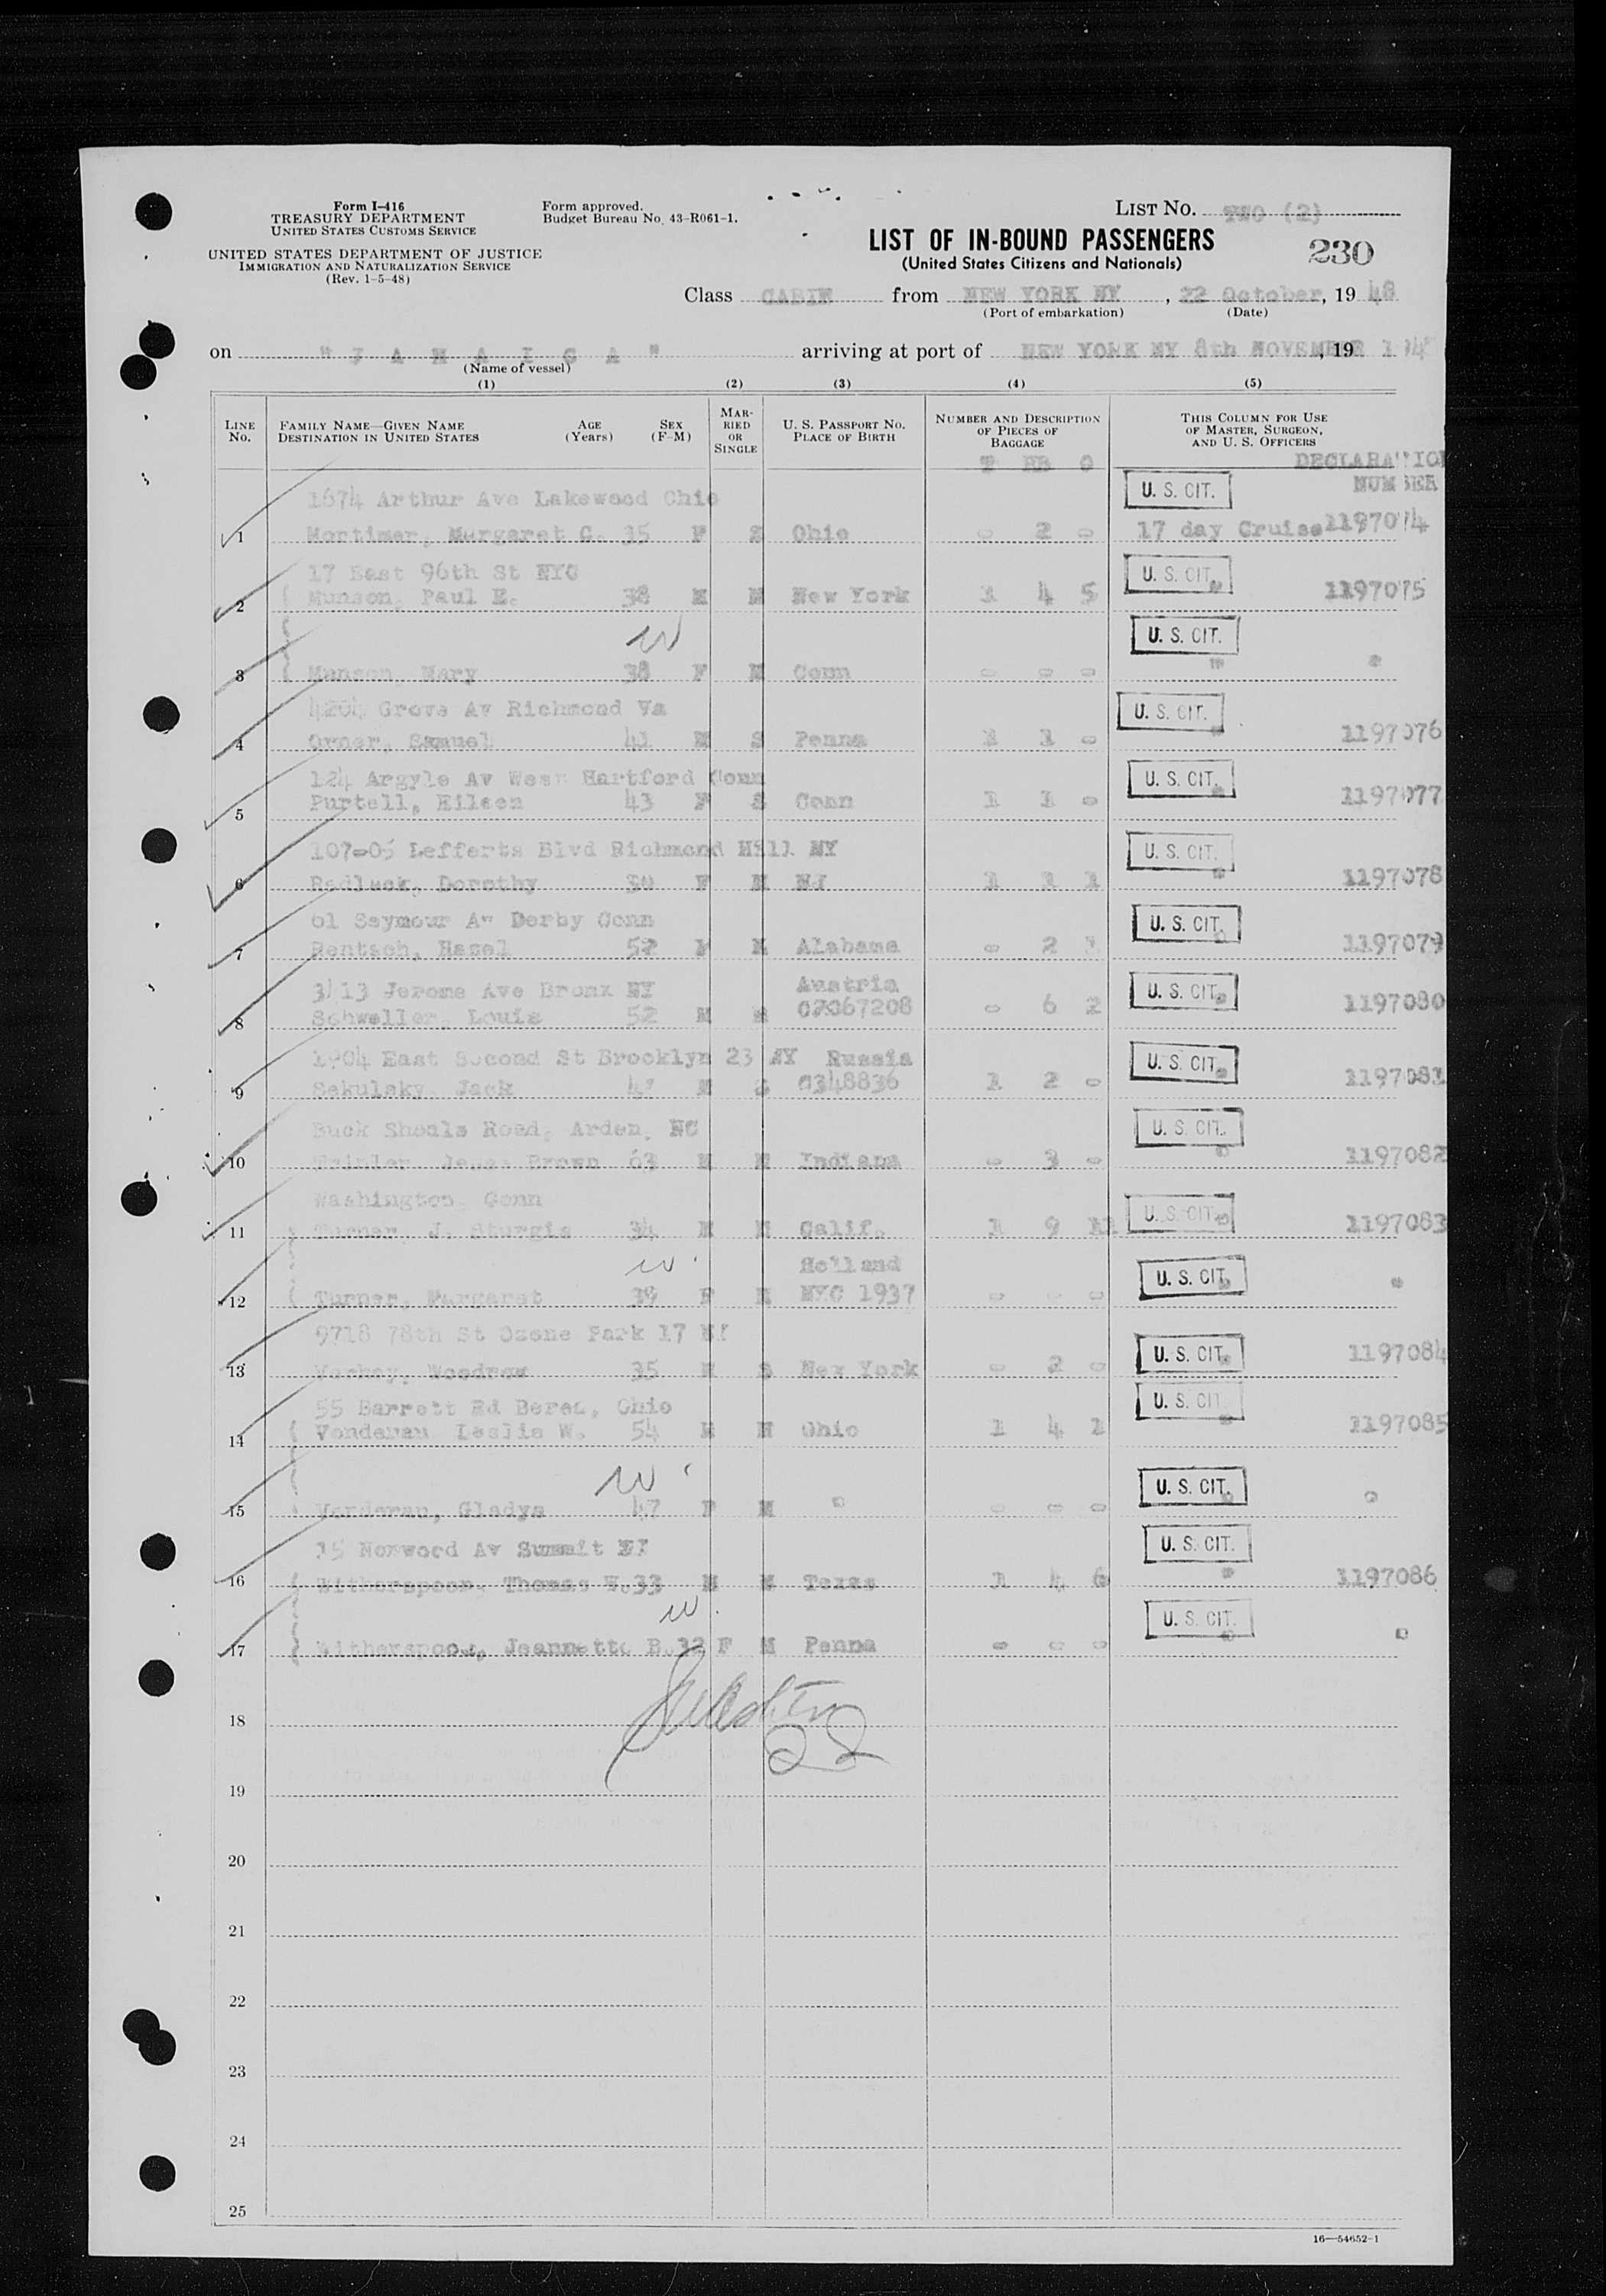 Form I-416
TREASURY DEPARTMENT
UNITED STATES CUSTOMS SERVICE
UNITED STATES DEPARTMENT OF JUSTICE
IMMIGRATION AND NATURALIZATION SERVICE
(Rev. 1-5-48)
Form approved.
Budget Bureau No. 43-R061-1.
LIST NO. TWO (2)
LIST OF IN-BOUND PASSENGERS
(United States Citizens and Nationals)
230
Class CABIN from NEW YORK NY, 22 October, 19 48
(Port of embarkation) (Date)
on "J A M A I C A" arriving at port of NEW YORK NY 8th NOVEMBER, 19
(Name of vessel)
(1) (2) (3) (4) (5)
LINE No. FAMILY NAME—GIVEN NAME DESTINATION IN UNITED STATES AGE (Years) SEX (F-M) MARRIED OR SINGLE U. S. PASSPORT No. PLACE OF BIRTH NUMBER AND DESCRIPTION OF PIECES OF BAGGAGE THIS COLUMN FOR USE OF MASTER, SURGEON, AND U. S. OFFICERS
T HB O DECLARATION
NUMBER
1674 Arthur Ave Lakewood Ohio U. S. CIT.
1 Mortimer, Margaret G. 35 F S Ohio - 2 - 17 day Cruise 1197074
17 East 96th St NYC U. S. CIT.
2 Munson, Paul E. 38 M M New York 1 4 5 " 1197075
U. S. CIT.
3 Munson, Mary 38 F M Conn - - - " "
4204 Grove Av Richmond Va U. S. CIT.
4 Orner, Samuel 41 M S Penna 1 1 - " 1197076
124 Argyle Av West Hartford Conn U. S. CIT.
5 Purtell, Eileen 43 F S Conn 1 1 - " 1197077
107-05 Lefferts Blvd Richmond Hill NY U. S. CIT.
6 Radluck, Dorothy 30 F M NJ 1 1 1 " 1197078
61 Seymour Av Derby Conn U. S. CIT.
7 Rentsch, Hazel 52 F M Alabama - 2 1 " 1197079
3413 Jerome Ave Bronx NY Austria U. S. CIT.
8 Schweller, Louis 52 M 067208 - 6 2 " 1197080
1904 East Second St Brooklyn 23 NY Russia U. S. CIT.
9 Sekulsky, Jack M S C348836 1 2 - " 1197081
Buck Shoals Road, Arden, NC U. S. CIT.
10 James Brown 63 M M Indiana - 3 - " 1197082
Washington, Conn U. S. CIT.
11 Turner, J. Sturgis 34 M M Calif. 1 9 11 " 1197083
Holland U. S. CIT.
12 Turner, Margaret 39 F M NYC 1937 - - - " "
9718 78th St Ozone Park 17 NY
13 Woodrow 35 M S New York - 2 - U. S. CIT. " 1197084
55 Barrett Rd Berea, Ohio U. S. CIT.
14 Vonderau Leslie W. 54 M M Ohio 1 4 1 " 1197085
U. S. CIT.
15 Vonderau, Gladys 47 F M " - - - " "
15 Norwood Av Summit NJ U. S. CIT.
16 Witherspoon, Thomas W. 33 M M Texas 1 4 6 " 1197086
U. S. CIT.
17 Witherspoon, Jeannette B. 32 F M Penna - - - " "
18
19
20
21
22
23
24
25
16—54652-1